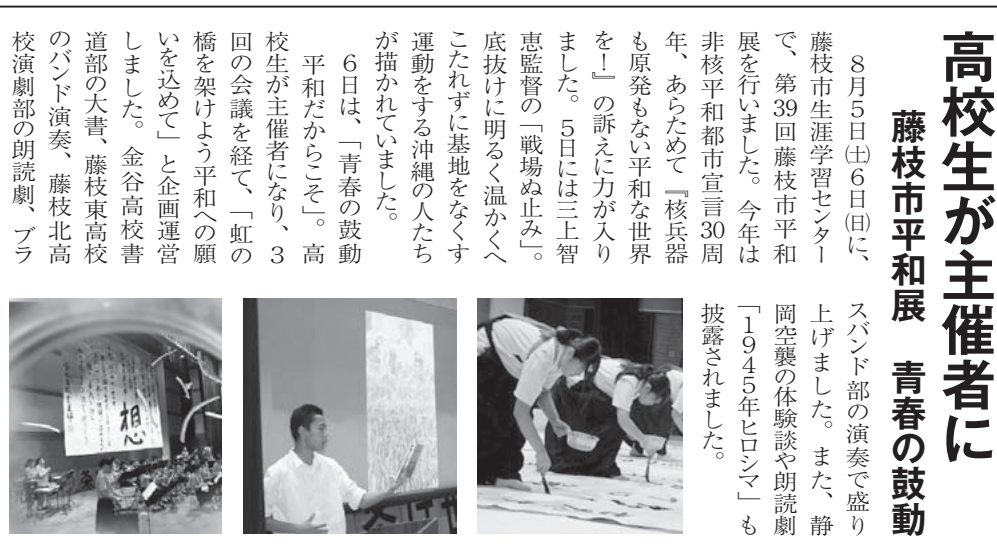 高校生が主催者に
藤枝市平和展　青春の鼓動
　8月5日㈯6日㈰に、
藤枝市生涯学習センター
で、第39回藤枝市平和
展を行いました。今年は
非核平和都市宣言30周
年、あらためて『核兵器
も原発もない平和な世界
を！』の訴えに力が入り
ました。5日には三上智
恵監督の「戦場ぬ止み」。
底抜けに明るく温かくへ
こたれずに基地をなくす
運動をする沖縄の人たち
が描かれていました。
　6日は、「青春の鼓動
　平和だからこそ」。高
校生が主催者になり、3
回の会議を経て、「虹の
橋を架けよう平和への願
いを込めて」と企画運営
しました。金谷高校書
道部の大書、藤枝東高校
のバンド演奏、藤枝北高
校演劇部の朗読劇、ブラ
スバンド部の演奏で盛り
上げました。また、静
岡空襲の体験談や朗読劇
「1945年ヒロシマ」も
披露されました。
想